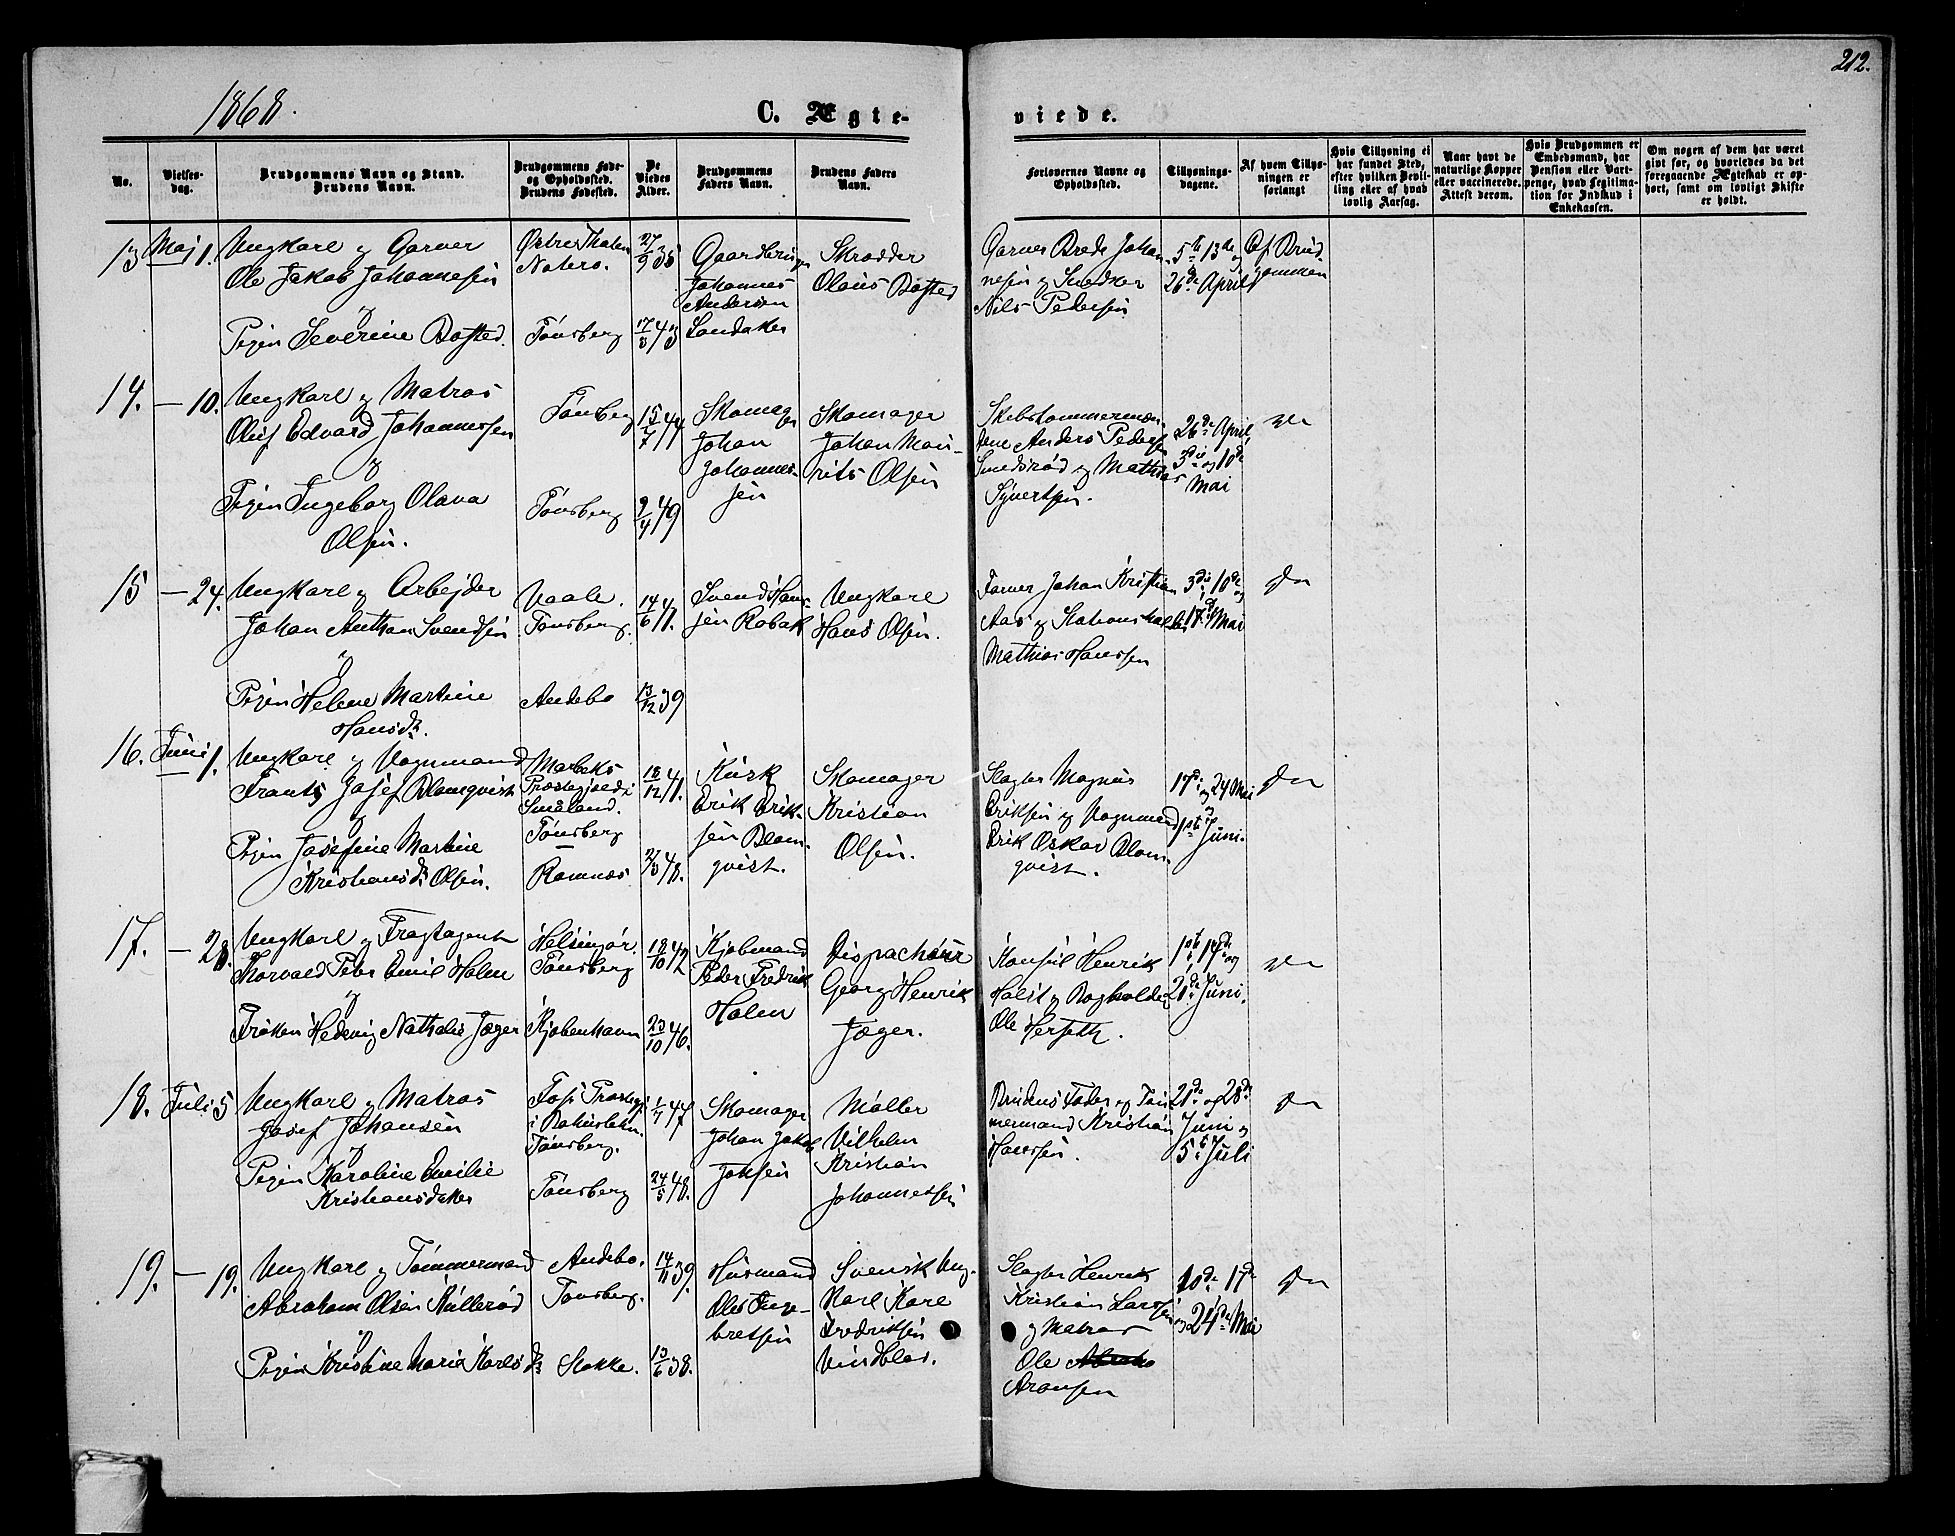 212.
1868.
C. Ægte-
viede.
No.
Vielses-
dag.
Brudgommens Navn og Stand.
Brudens Navn.
Brudgommens Føde-
og Opholdssted.
Brudens Fødested.
De
Viedes
Alder.
Brudgommens
Faders Navn.
Brudens Faders
Navn.
Forlovernes Navne og
Opholdssted.
Tillysnings-
dagene.
Af hvem Tillys-
ningen er
forlangt
Hvis Tillysning ei
har fundet Sted,
efter hvilken Bevil-
ling eller af hvad
lovlig Aarsag.
Naar havt de
naturlige Kopper
eller vaccinerede.
Attest derom.
Hvis Brudgommen er
Embedsmand, har
Pension eller Vart-
penge, hvad Legitima-
tion for Indskud i
Enkekassen.
Om nogen af dem har været
gift før, og hvorledes da det
foregaaende Ægteskab er op-
hørt, samt om lovligt Skifte
er holdt.
13 Maj 1.
Ungkarl og Garver
Ole Jakob Johannesen
og
Pigen Severine Bofted.
Nøterø.
Tønsberg
27/9 35
17/3 43
Gaardbruger
Johannes
Andersen
Sandaker
Skrædder
Olaus Bofted
Garver Brede Johan-
nesen og Snedker
Nils Pedersen
5te 13de og
26de April
Af Brud-
gommen
14. — 10.
Ungkarl og Matros
Oluf Edvard Johannessen
og
Pigen Ingeborg Olava
Olsen.
Tønsberg
Tønsberg
15/7 44
9/4 49
Skomager
Johan
Johannes-
sen
Skomager
Johan Mau-
rits Olsen
Skibstømmermæn-
dene Anders Peders
Smedsrød og Mathias
Syvertsen.
26de April,
3die og 10de
Mai
do
15 — 24.
Ungkarl og Arbejder
Johan Anthon Svendsen
og
Pigen Helene Martine
Hansdr.
Vaale.
Tønsberg.
Andebo
14/6 41.
13/12 39
Svend Han-
sen Robak
Ungkarl
Hans Olsen.
Farver Johan Kristian
Aas og Stationsholder
Mathias Hanssen
3die 10de og
17de Mai
do
16. Juni 1.
Ungkarl og Vognmand
Frants Josef Blomqvist
og
Pigen Josefine Martine
Kristiansdr Olsen.
Marbeks
Præstegjeld i
Smaland.
Tønsberg
Ramnæs
18/12 41.
27/3 48.
Kusk
Erik Erik-
sen Blom-
qvist.
Skomager
Kristian
Olsen.
Slagter Magnus
Eriksen og Vognmand
Erik Oskar Blom-
qvist.
17de og 24 Mai
og
1ste Juni.
do
17. — 28.
Ungkarl og Fragtagent
Thorvald Peter Emil Holm
og
Frøken Hedevig Nathalie Jæger
Helsingør.
Tønsberg
Kjøbenhavn
18/10 42
23/10 46.
Kjøbmand
Peder Fredrik
Holm
Dispachør
Georg Henrik
Jæger.
Konsul Henrik
Holst og Bogholder
Ole Herseth.
1ste, 14de og
21de Juni.
do
18. Juli 5
Ungkarl og Matros
Josef Johansen
og
Pigen Karoline Emilie
Kristiansdatter
i Bahuslehn.
Tønsberg.
Tønsberg
1/7 47
24/5 48.
Skomager
Johan Jakob
Johsen
Møller
Vilhelm
Kristian
Johannessen
Brudens Fader og Tøm-
mermand Kristian
Hanssen.
21de og 28de
Juni og
5te Juli
do
19. — 19.
Ungkarl og Tømmermand
Abraham Olsen Kullerød
og
Pigen Kristine Marie Karlsdr
Andebo.
Tønsberg.
Stokke.
14/11 39.
13/6 38.
Husmand
Ole Inge-
bretsen
Svensk Ung-
karl Karl
Fredriksen
Vindblad.
Slagter Henrik
Kristian Larssen
og Matros
Ole
Aronsen
10de 17de
og 24de Mai
do